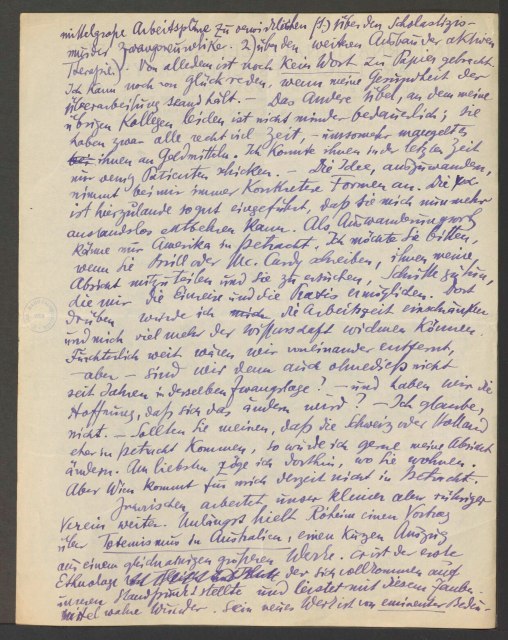 mittelgroße Arbeitspläne zu verwirklichen (1.) über den Scholastizis-
mus der Zwangsneurotiker. 2) über den weiteren Ausbau der aktiven
Therapie). Von alledem ist noch kein Wort zu Papier gebracht.
Ich kann noch von Glück reden, wenn meine Gesundheit der
Überarbeitung stand hält. — Das andere Übel, an dem meine
übrigen Kollegen leiden ist nicht minder bedauerlich; sie
haben zwar alle recht viel Zeit, – umsomehr mangelt es
ihnen an Geldmitteln. Ich konnte ihnen in der letzten Zeit
nur wenig Patienten schicken. — Die Idee, auszuwandern,
nimmt bei mir immer konkretere Formen an. Die
ist hierzulande so gut eingeführt, daß sie mich nunmehr
anstandslos entbehren kann. Als Auswanderungsort
käme nur Amerika in Betracht. Ich möchte Sie bitten,
wenn Sie Brill oder Mc. Curdy schreiben, ihnen meine
Absicht mitzuteilen und sie zu ersuchen, Schritte zu tun,
die mir die Einreise und die Praxis ermöglichen. Dort
drüben werde ich die Arbeitszeit einschränken
und mich viel mehr der Wissenschaft widmen können.
Fürchterlich weit wären wir voneinander entfernt,
– aber – sind wir denn auch ohnedieß nicht
seit Jahren in derselben Zwangslage? – und haben wir die
Hoffnung, daß sich das ändern wird? – Ich glaube,
nicht. – Sollten Sie meinen, daß die Schweiz oder Holland
eher in Betracht kommen, so würde ich gerne meine Absicht
ändern. Am liebsten zöge ich dorthin, wo Sie wohnen.
Aber Wien kommt für mich derzeit nicht in Betracht.
Inzwischen arbeitet unser kleiner aber rühriger
Verein weiter. Unlängst hielt Róheim einen Vortrag
über Totemismus in Australien, einen kurzen Auszug
aus einem gleichnamigen größeren Werke. Er ist der erste
Ethnologe der sich vollkommen auf
unseren Standpunkt stellte und leistet mit diesem Zauber-
mittel wahre Wunder. Sein neues Werk ist von eminenter Bedeu-